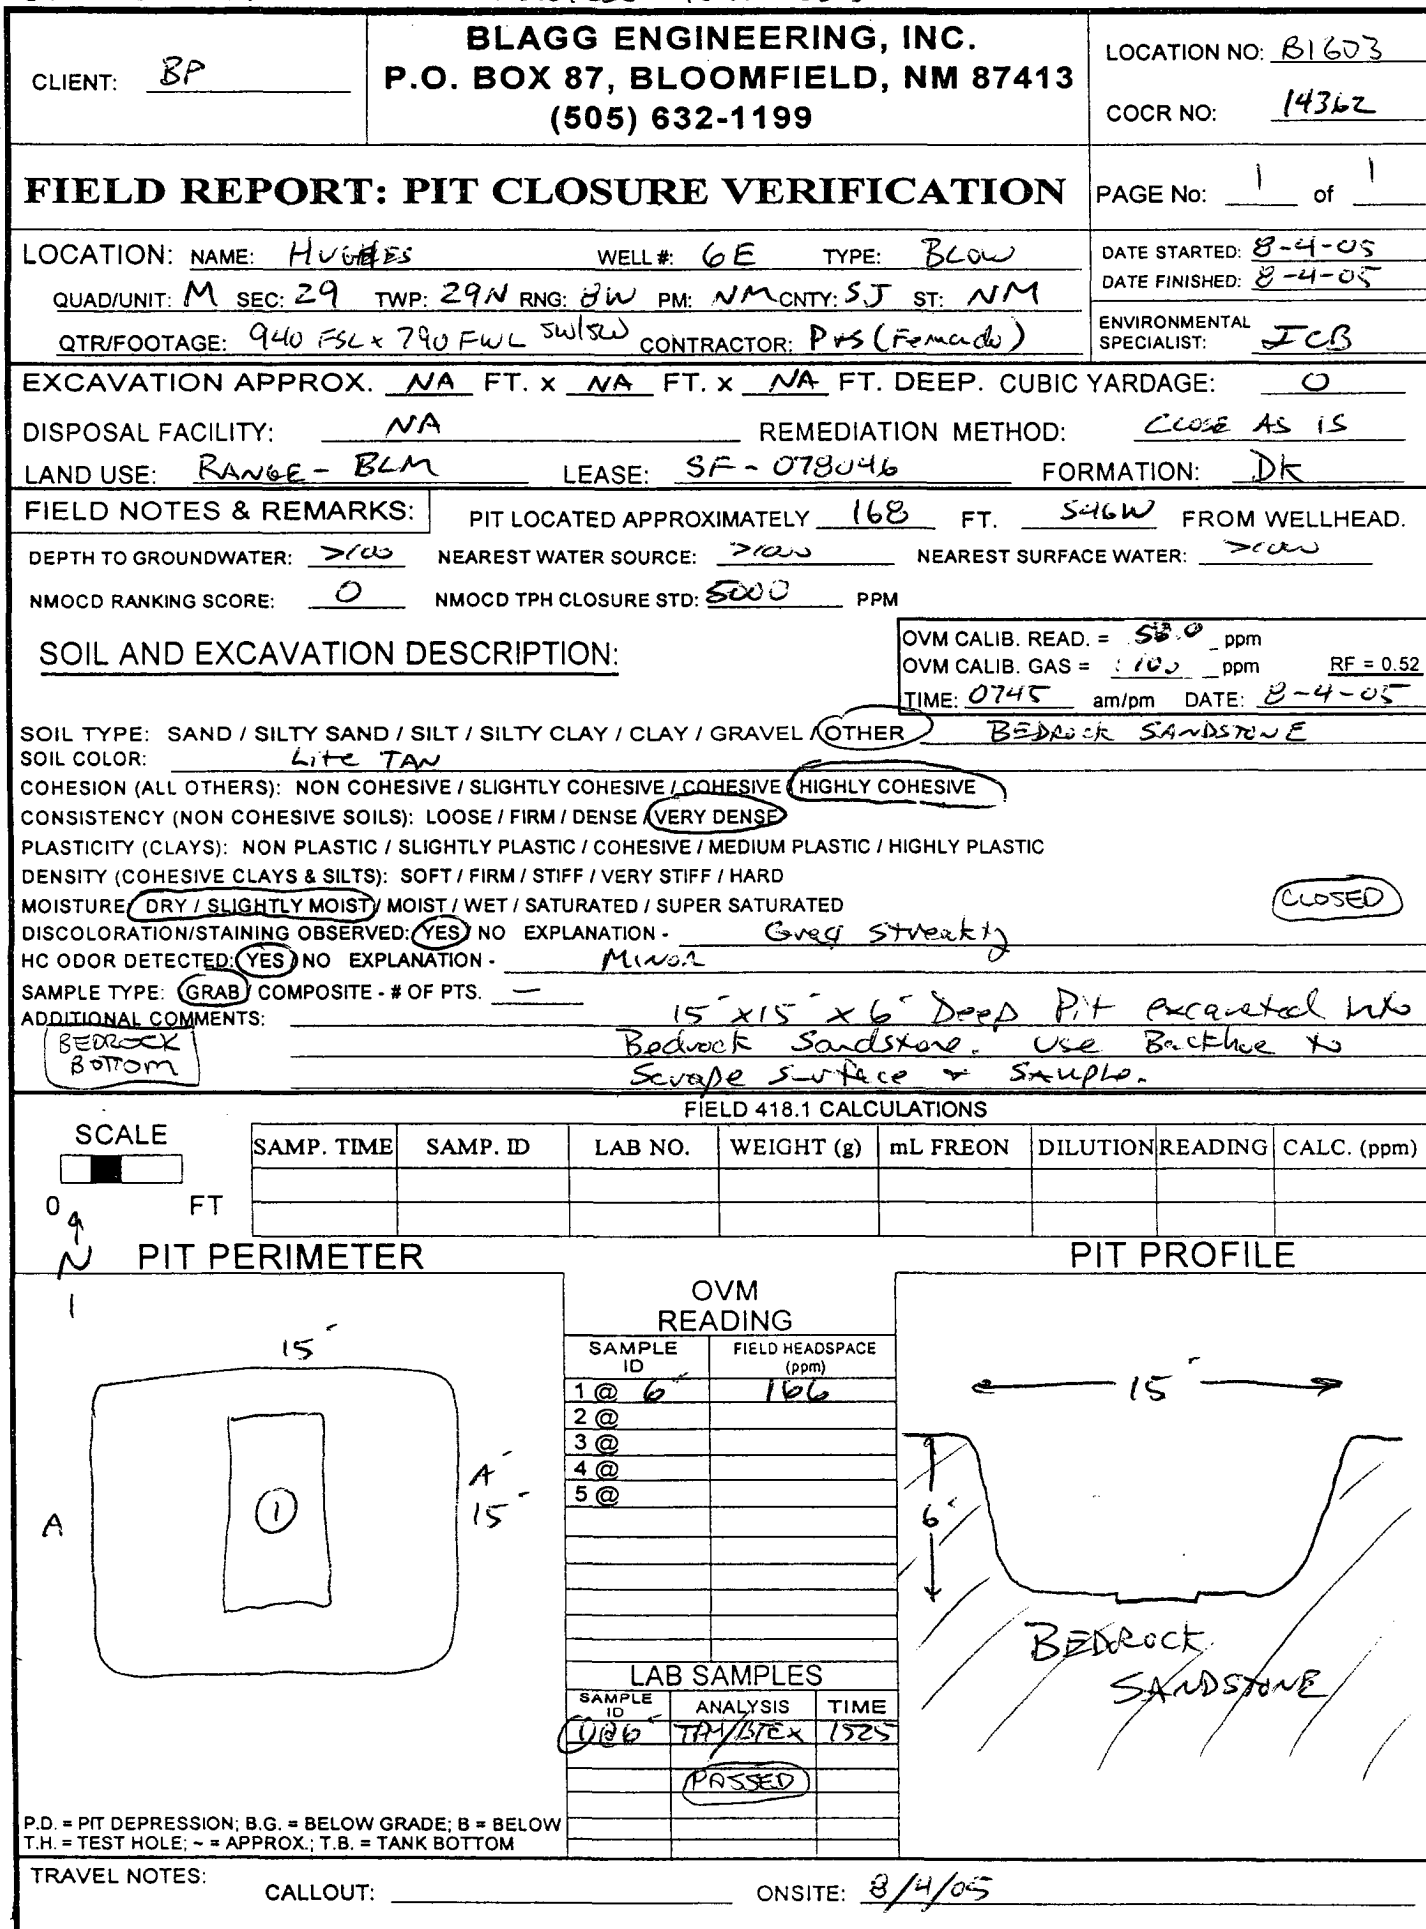 BLAGG ENGINEERING, INC.
P.O. BOX 87, BLOOMFIELD, NM 87413
(505) 632-1199
CLIENT: BP
LOCATION NO: B1603
COCR NO: 14362
FIELD REPORT: PIT CLOSURE VERIFICATION
PAGE No: 1 of 1
LOCATION: NAME: HUGHES WELL #: 6E TYPE: BLOW
QUAD/UNIT: M SEC: 29 TWP: 29N RNG: 8W PM: NM CNTY: SJ ST: NM
QTR/FOOTAGE: 940 FSL x 790 FWL SW/SW CONTRACTOR: P+S (Fernando)
DATE STARTED: 8-4-05
DATE FINISHED: 8-4-05
ENVIRONMENTAL
SPECIALIST: JCB
EXCAVATION APPROX. NA FT. x NA FT. x NA FT. DEEP. CUBIC YARDAGE: 0
DISPOSAL FACILITY: NA REMEDIATION METHOD: CLOSE AS IS
LAND USE: RANGE - BLM LEASE: SF - 078046 FORMATION: DK
FIELD NOTES & REMARKS: PIT LOCATED APPROXIMATELY 168 FT. S46W FROM WELLHEAD.
DEPTH TO GROUNDWATER: >100 NEAREST WATER SOURCE: >1000 NEAREST SURFACE WATER: >1000
NMOCD RANKING SCORE: 0 NMOCD TPH CLOSURE STD: 5000 PPM
SOIL AND EXCAVATION DESCRIPTION:
OVM CALIB. READ. = ppm
OVM CALIB. GAS = 100 ppm RF = 0.52
TIME: 0745 am/pm DATE: 8-4-05
SOIL TYPE: SAND / SILTY SAND / SILT / SILTY CLAY / CLAY / GRAVEL / OTHER BEDROCK SANDSTONE
SOIL COLOR: Lite TAN
COHESION (ALL OTHERS): NON COHESIVE / SLIGHTLY COHESIVE / COHESIVE / HIGHLY COHESIVE
CONSISTENCY (NON COHESIVE SOILS): LOOSE / FIRM / DENSE / VERY DENSE
PLASTICITY (CLAYS): NON PLASTIC / SLIGHTLY PLASTIC / COHESIVE / MEDIUM PLASTIC / HIGHLY PLASTIC
DENSITY (COHESIVE CLAYS & SILTS): SOFT / FIRM / STIFF / VERY STIFF / HARD
MOISTURE: DRY / SLIGHTLY MOIST / MOIST / WET / SATURATED / SUPER SATURATED
CLOSED
DISCOLORATION/STAINING OBSERVED: YES / NO EXPLANATION -
HC ODOR DETECTED: YES / NO EXPLANATION - MINOR
SAMPLE TYPE: GRAB / COMPOSITE - # OF PTS. —
ADDITIONAL COMMENTS: 15' x 15' x 6' Deep Pit excavated into
BEDROCK
BOTTOM
Bedrock Sandstone. Use Backhoe to
Scrape Surface + Sample.
FIELD 418.1 CALCULATIONS
SCALE
0 FT
SAMP. TIME SAMP. ID LAB NO. WEIGHT (g) mL FREON DILUTION READING CALC. (ppm)
N
PIT PERIMETER
15'
A
1
A'
15'
OVM
READING
SAMPLE ID FIELD HEADSPACE (ppm)
1 @ 6' 166
2 @
3 @
4 @
5 @
LAB SAMPLES
SAMPLE ID ANALYSIS TIME
1@6' TPH/BTEX 1525
PASSED
PIT PROFILE
15'
6'
BEDROCK
SANDSTONE
P.D. = PIT DEPRESSION; B.G. = BELOW GRADE; B = BELOW
T.H. = TEST HOLE; ~ = APPROX.; T.B. = TANK BOTTOM
TRAVEL NOTES:
CALLOUT: ONSITE: 8/4/05